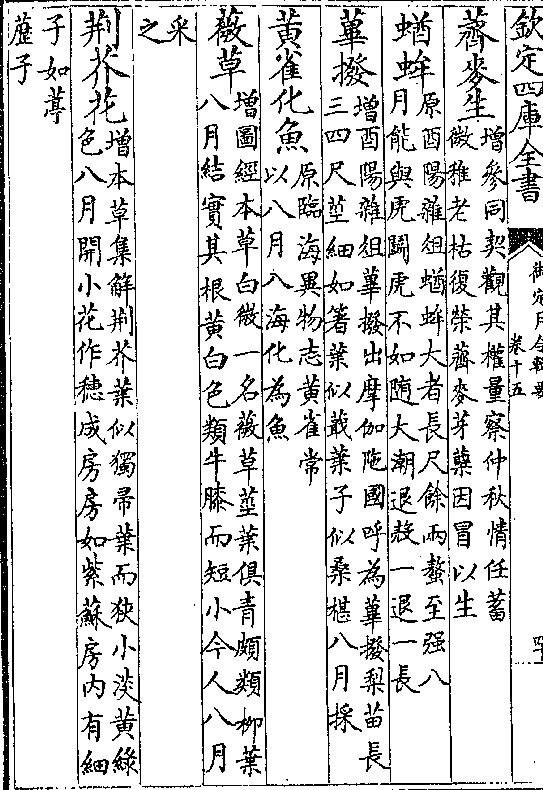 欽定四庫全書
御定月令輯要
卷十五
薺麥生
增參同契觀其權量察仲秋情任蓄
微稚老枯復榮薺麥芽蘖因冒以生
蝤蛑
原酉陽雜俎蝤蛑大者長尺餘兩螯至强八
月能與虎鬭虎不如隨大潮退殼一退一長
蓽撥
增酉陽雜俎蓽撥出摩伽陁國呼為蓽撥梨苗長
三四尺莖細如箸葉似蕺葉子似桑椹八月採
黄雀化魚
原臨海異物志黄雀常
以八月入海化為魚
薇草
增圖經本草白微一名薇草莖葉俱青頗類栁葉
八月結實其根黄白色類牛膝而短小今人八月
采
之
荆芥花
增本草集解荆芥葉似獨帚葉而狹小淡黄綠
色八月開小花作穗成房房如紫蘇房内有細
子如葶
藶子